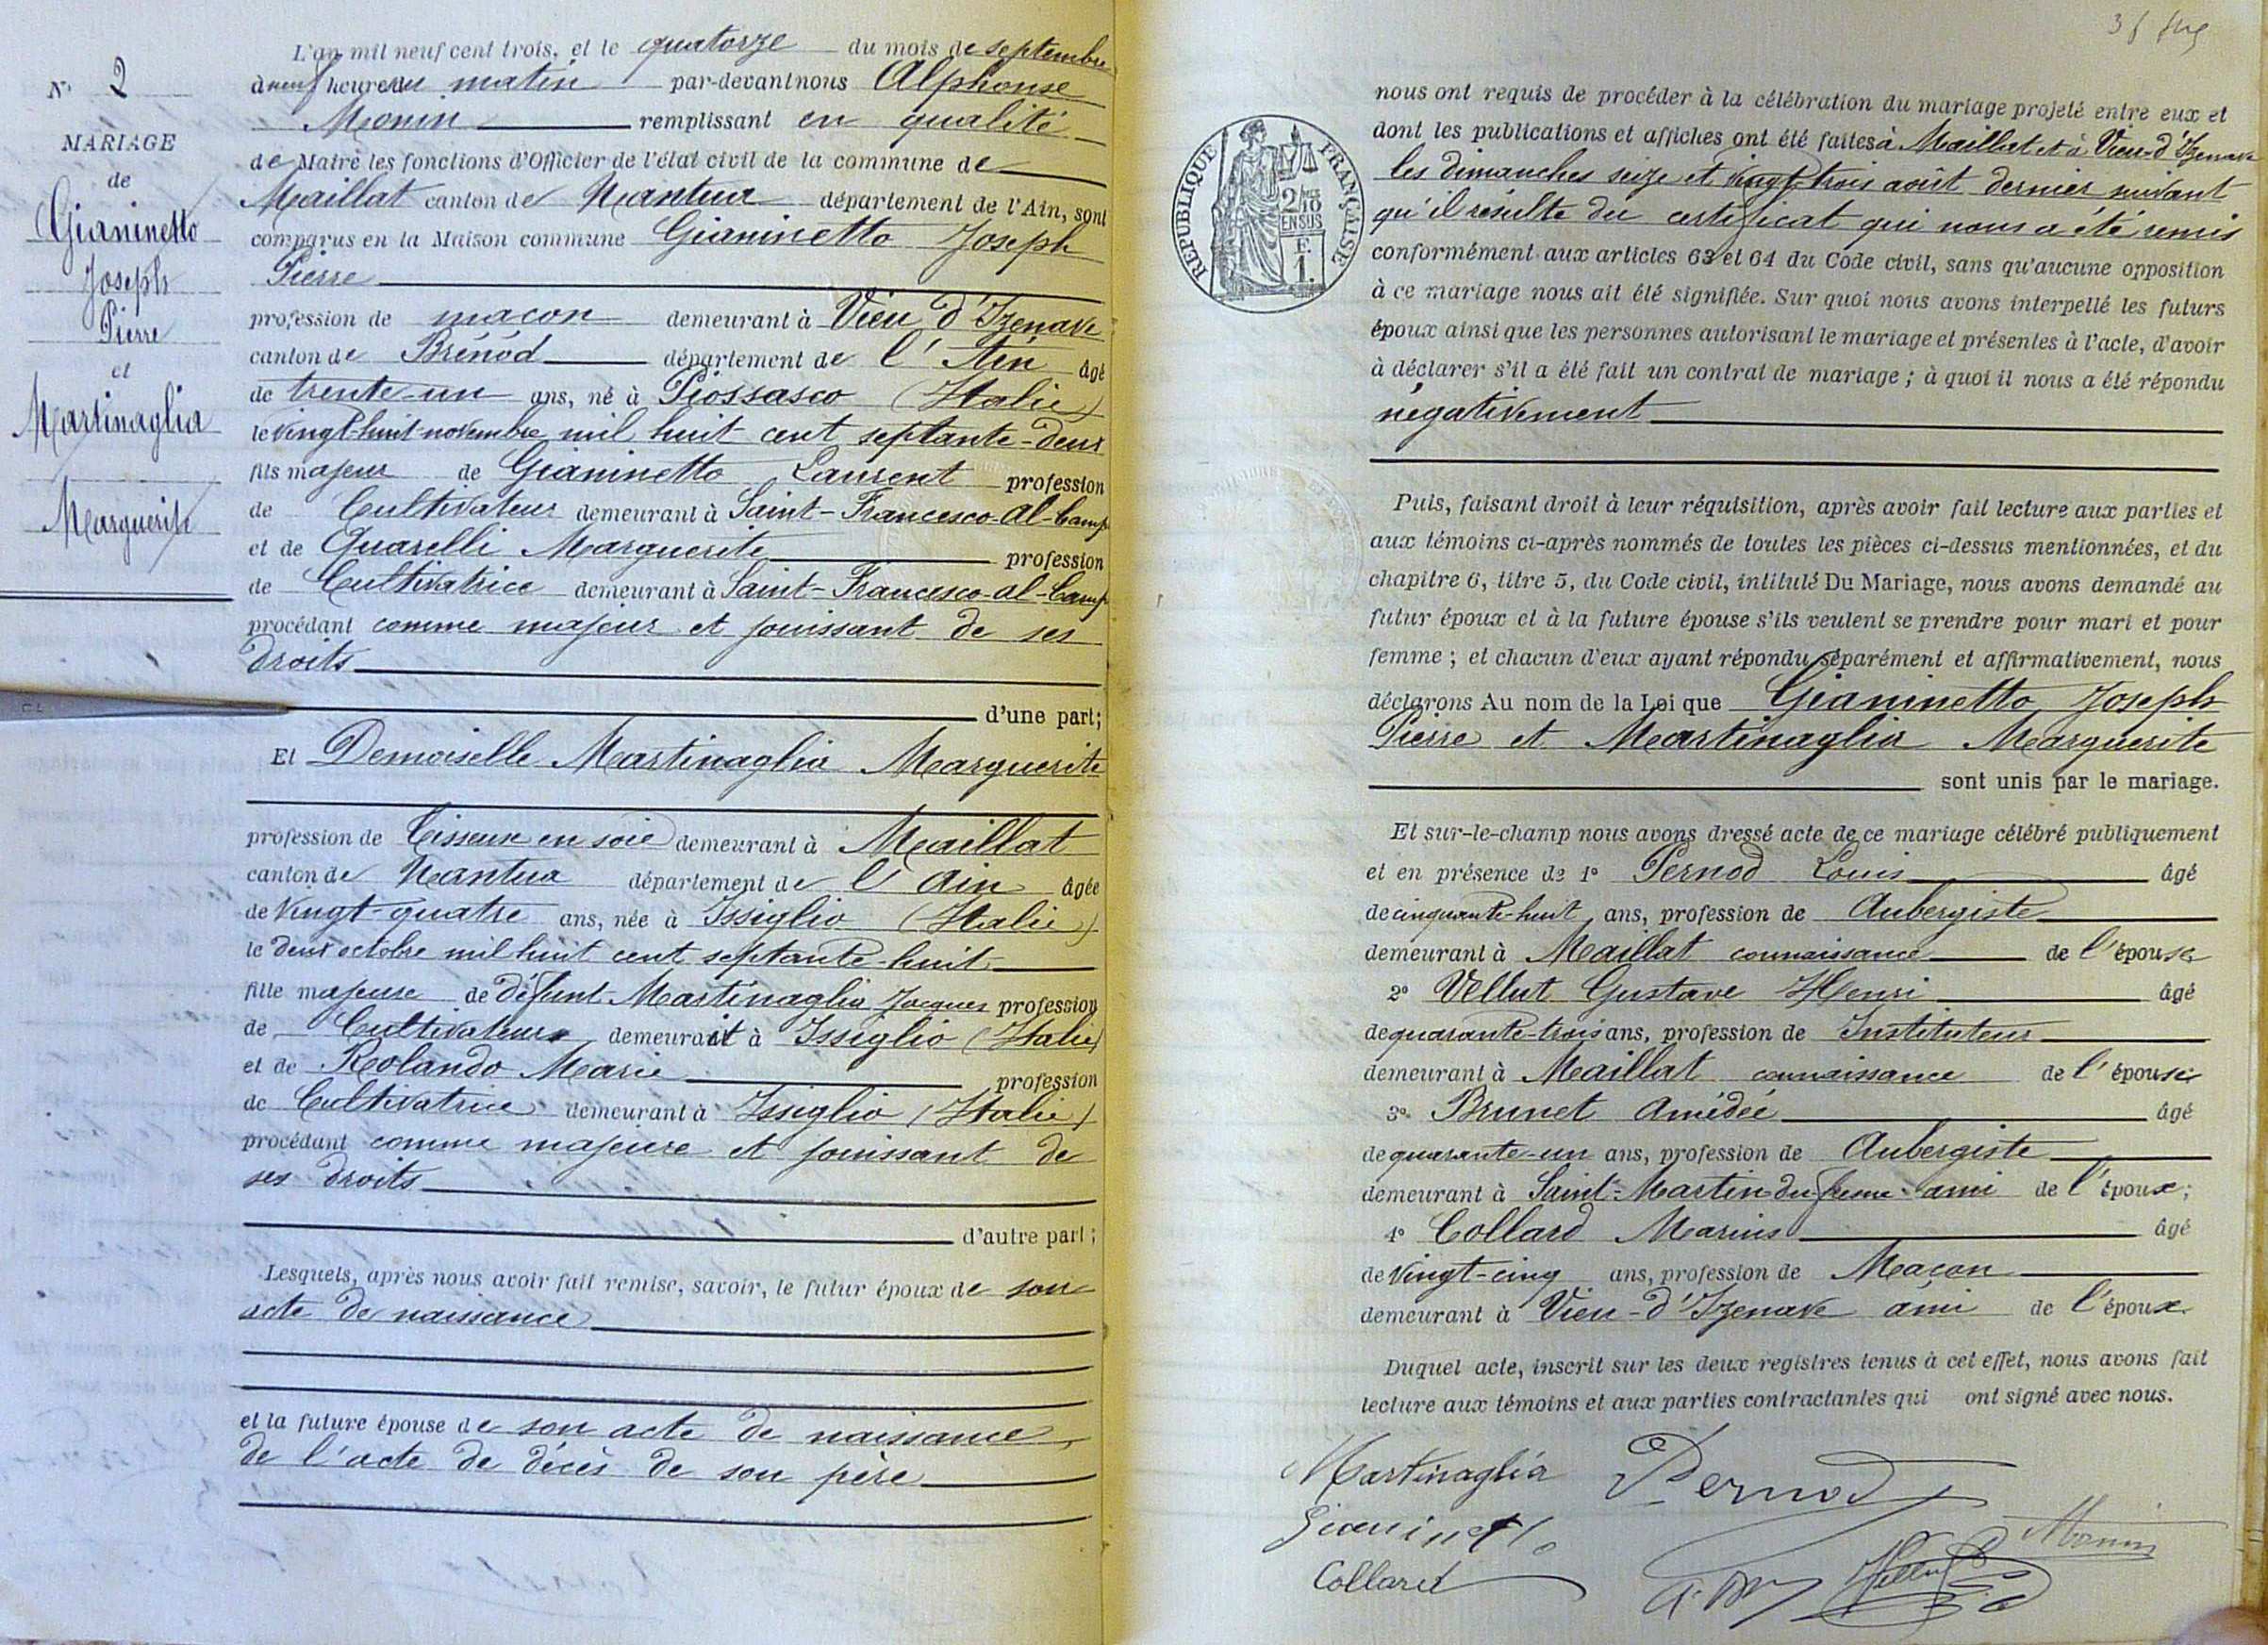 N° 2
MARIAGE
de
Gianinetto
Joseph
Pierre
et
Martinaglia
Marguerite
L'an mil neuf cent trois, et le quatorze du mois de septembre
à neuf heures du matin par-devant nous Alphonse
Monin remplissant en qualité
de Maire les fonctions d'Officier de l'état civil de la commune de
Maillat canton de Nantua département de l'Ain, sont
comparus en la Maison commune Gianinetto Joseph
Pierre
profession de maçon demeurant à Vieu d'Izenave
canton de Brénod département de l'Ain âgé
de trente-un ans, né à Piossasco (Italie)
le vingt-huit novembre mil huit cent septante-deux
fils majeur de Gianinetto Laurent profession
de Cultivateur demeurant à Saint-Francesco-al-Camp
et de Quarelli Marguerite profession
de Cultivatrice demeurant à Saint-Francesco-al-Camp
procédant comme majeur et jouissant de ses
droits
d'une part;
Et Demoiselle Martinaglia Marguerite
profession de Tisseuse en soie demeurant à Maillat
canton de Nantua département de l'Ain âgée
de vingt-quatre ans, née à Issiglio (Italie)
le deux octobre mil huit cent septante-huit
fille majeure de défunt Martinaglia Jacques profession
de Cultivateur demeurait à Issiglio (Italie)
et de Rolando Marie profession
de Cultivatrice demeurant à Issiglio (Italie)
procédant comme majeure et jouissant de
ses droits
d'autre part;
Lesquels, après nous avoir fait remise, savoir, le futur époux de son
acte de naissance
et la future épouse de son acte de naissance,
de l'acte de décès de son père
RÉPUBLIQUE FRANÇAISE
2/10
EN SUS
F.
1.
nous ont requis de procéder à la célébration du mariage projeté entre eux et
dont les publications et affiches ont été faites à Maillat et à Vieu-d'Izenave
les dimanches seize et vingt-trois août dernier suivant
qu'il résulte du certificat qui nous a été remis
conformément aux articles 63 et 64 du Code civil, sans qu'aucune opposition
à ce mariage nous ait été signifiée. Sur quoi nous avons interpellé les futurs
époux ainsi que les personnes autorisant le mariage et présentes à l'acte, d'avoir
à déclarer s'il a été fait un contrat de mariage; à quoi il nous a été répondu
négativement
Puis, faisant droit à leur réquisition, après avoir fait lecture aux parties et
aux témoins ci-après nommés de toutes les pièces ci-dessus mentionnées, et du
chapitre 6, titre 5, du Code civil, intitulé Du Mariage, nous avons demandé au
futur époux et à la future épouse s'ils veulent se prendre pour mari et pour
femme; et chacun d'eux ayant répondu séparément et affirmativement, nous
déclarons Au nom de la Loi que Gianinetto Joseph
Pierre et Martinaglia Marguerite
sont unis par le mariage.
Et sur-le-champ nous avons dressé acte de ce mariage célébré publiquement
et en présence de 1° Pernod Louis âgé
de cinquante-huit ans, profession de Aubergiste
demeurant à Maillat connaissance de l'épouse
2° Vellut Gustave Henri âgé
de quarante-trois ans, profession de Instituteur
demeurant à Maillat connaissance de l'épouse
3° Brunet Amédée âgé
de quarante-un ans, profession de Aubergiste
demeurant à Saint-Martin-du-fresne ami de l'époux;
4° Collard Marius âgé
de vingt-cinq ans, profession de Maçon
demeurant à Vieu-d'Izenave ami de l'époux
Duquel acte, inscrit sur les deux registres tenus à cet effet, nous avons fait
lecture aux témoins et aux parties contractantes qui ont signé avec nous.
Martinaglia Pernod
Gianinetto Monin
Collard Vellut